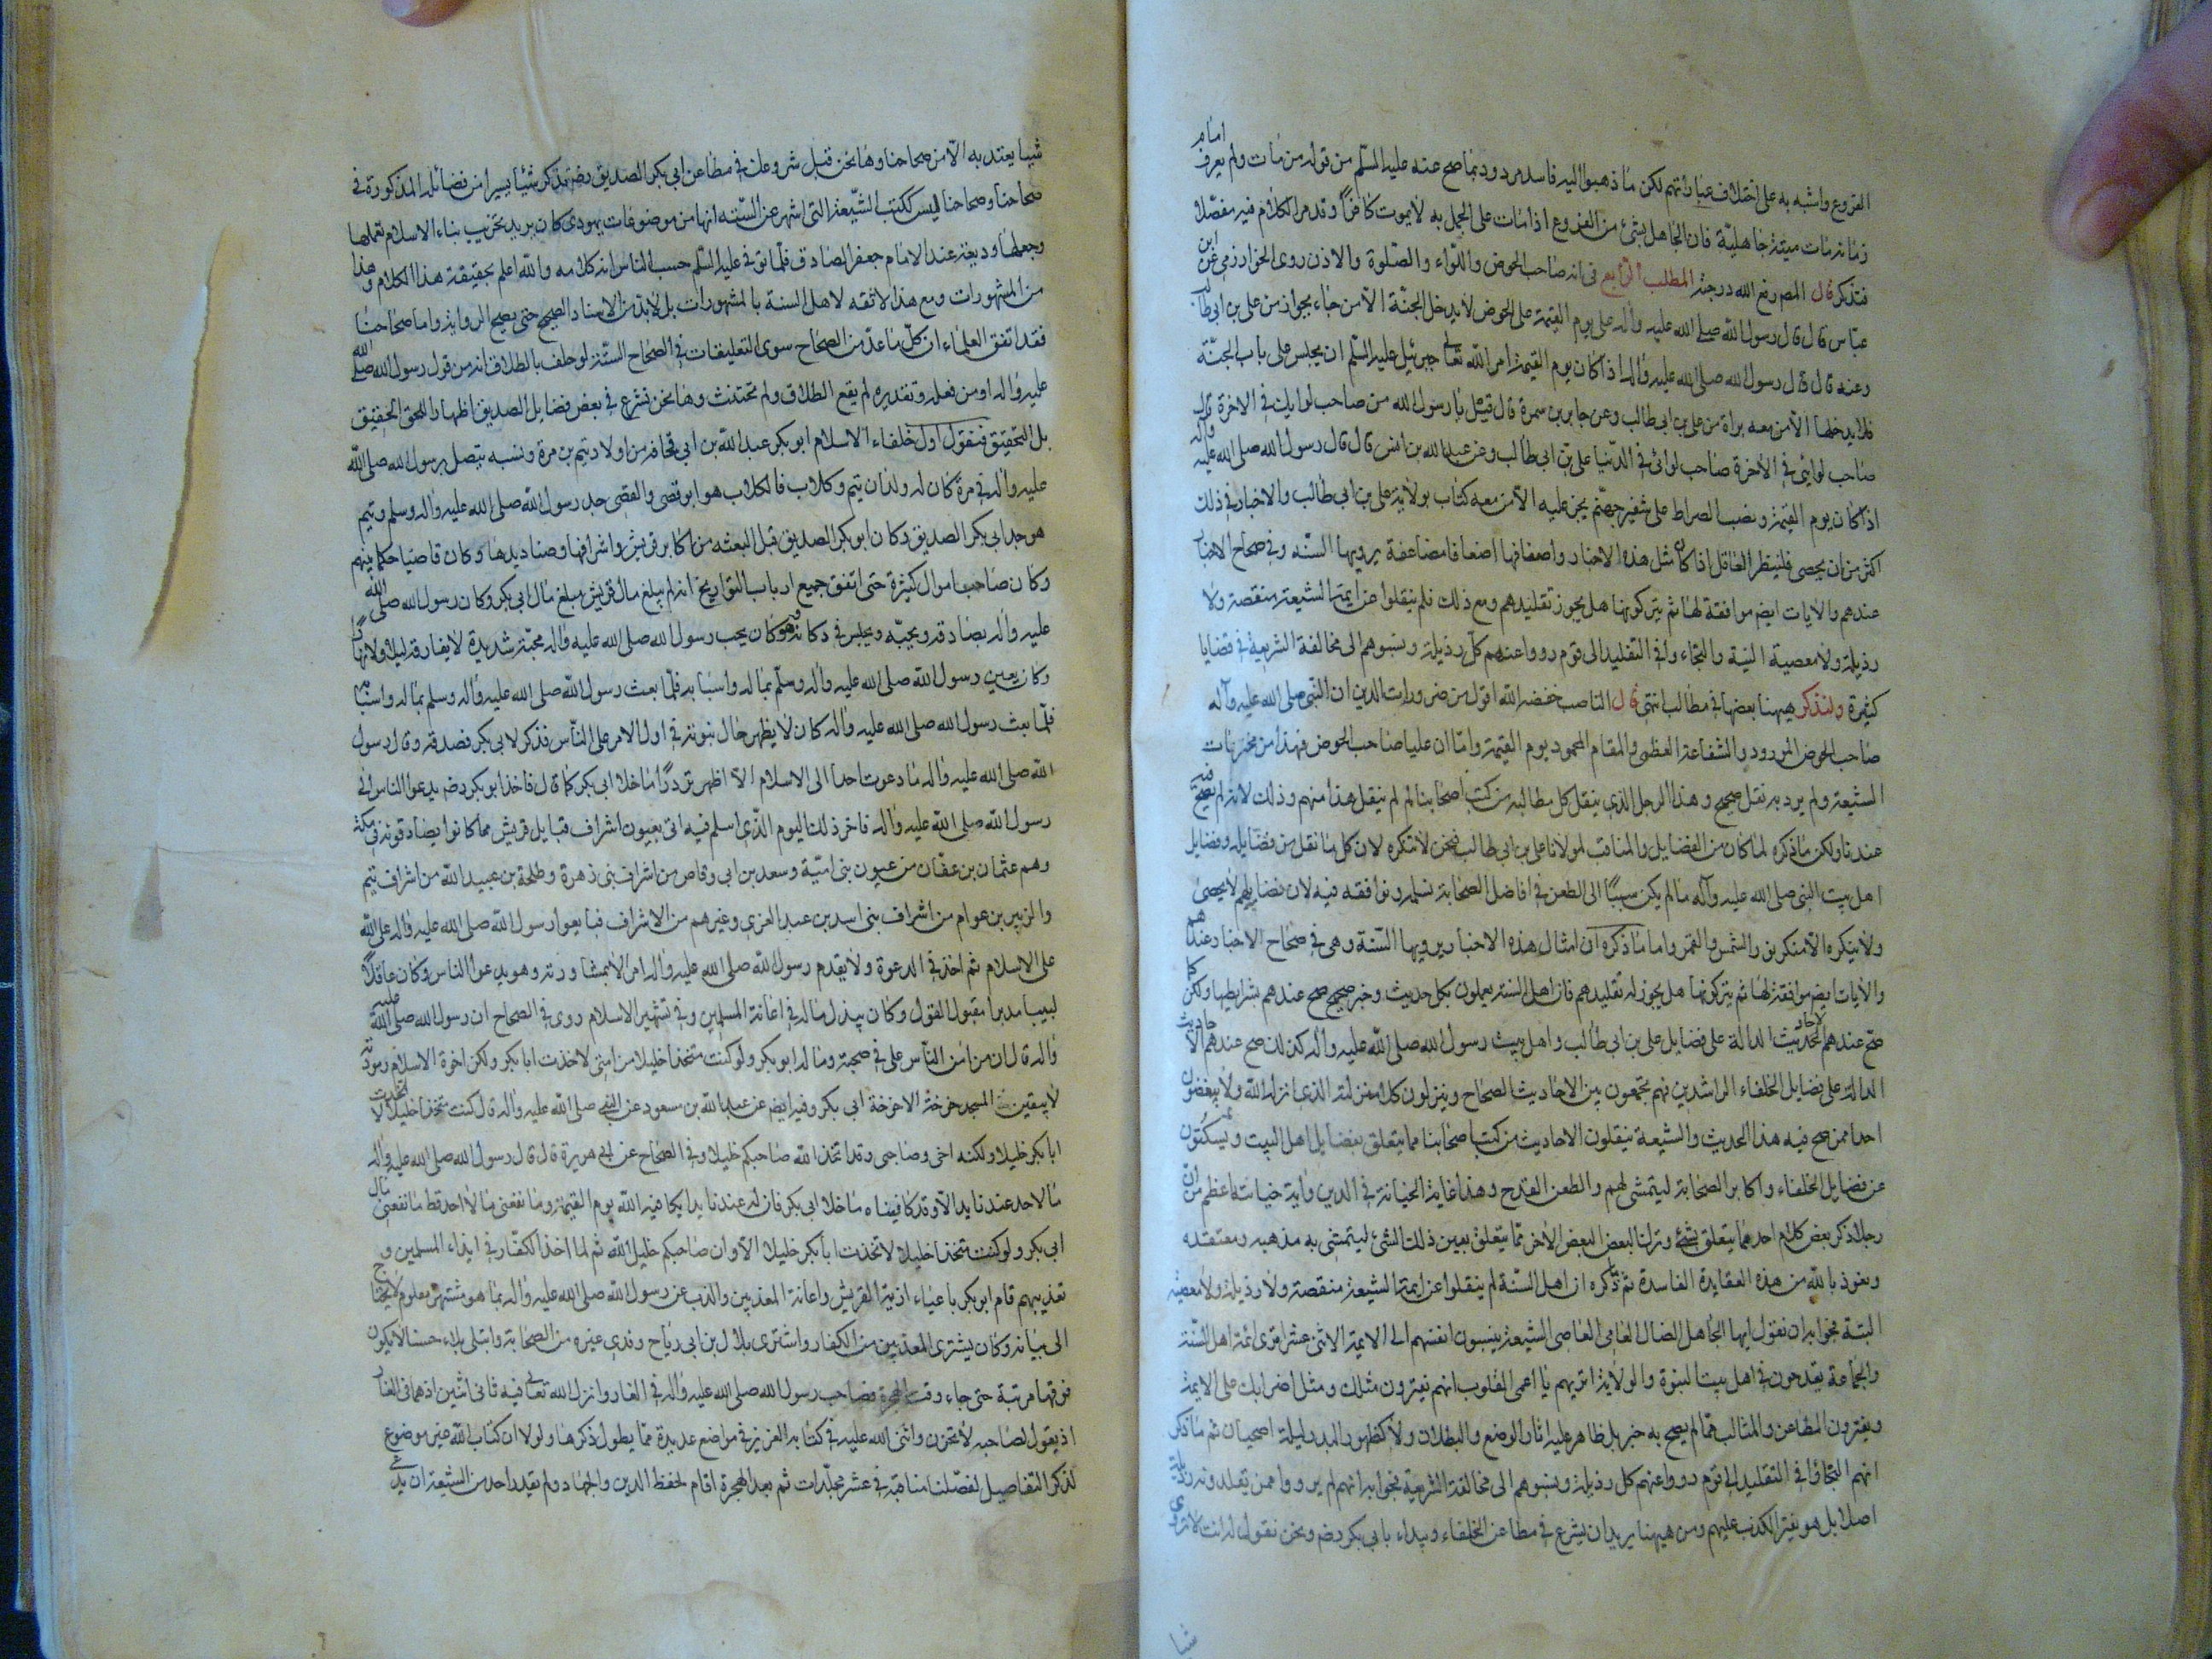 امام
الفروع واشبه به على اختلاف عباراتهم لكن ما ذهبوا اليه فاسد مردود بما صح عنه عليه السلم من قوله من مات ولم يعرف
زمانه مات ميتة جاهلية فان الجاهل بشئ من الفروع اذا مات على الجهل به لا يموت كافرا وقد مر الكلام فيه مفصلا
فتذكر قال المص رفع الله درجته المطلب الرابع في انه صاحب الحوض واللواء والصلوة والاذن روى الخوارزمى عن ابن
عباس قال قال رسول الله صلى الله عليه واله على يوم القيمة على الحوض لا يدخل الجنة الا من جاء بجواز من على بن ابى طالب
وعنه قال قال رسول الله صلى الله عليه واله اذا كان يوم القيمة امر الله تعالى جبرئيل عليه السلم ان يجلس على باب الجنة
فلا يدخلها الا من معه براة من على بن ابى طالب وعن جابر بن سمرة قال قيل يا رسول الله من صاحب لوايك في الاخرة قال
صاحب لوايئ في الاخرة صاحب لوائى في الدنيا على بن ابى طالب وعن عبد الله بن انس قال قال رسول الله صلى الله عليه واله
اذا كان يوم القيمة ونصب الصراط على شفير جهنم لم يجز عليه الا من معه كتاب بولاية على بن ابى طالب والاخبار في ذلك
اكثر من ان يحصى فلينظر العاقل اذا كان مثل هذه الاخبار واضعافها اضعافا مضاعفة يرويها السنه وفي صحاح الاخبار
عندهم والايات ايضم موافقة لها ثم يتركونها هل يجوز تقليدهم ومع ذلك فلم ينقلوا عن ايمة الشيعة منقصة ولا
رذيلة ولا معصية البتة والتجاء وافي التقليد الى قوم رووا عنهم كل رذيلة ونسبوهم الى مخالفة الشريعة في قضايا
كثيرة ولنذكر هيهنا بعضها في مطالب انتهى قال الناصب خفضه الله اقول من ضروريات الدين ان النبى صلى الله عليه وآله
صاحب الحوض المورود والشفاعة العظمى والمقام المحمود يوم القيمة واما ان عليا صاحب الحوض فهذا من مخترعات
الشيعة ولم يرد به نقل صحيح وهذا الرجل الذى ينقل كل مطالبه من كتب اصحابنا لم لم ينقل هذا منهم وذلك لانه لم يصح فيه
عندنا ولكن ما ذكره لما كان من الفضايل والمناقب لمولانا على بن ابى طالب فنحن لا ننكره لان كل ما نقل من فضايله وفضايل
اهل بيت النبى صلى الله عليه وآله ما لم يكن سببا الى الطعن في افاضل الصحابة نسلمه ونوافقه فيه لان فضايلهم لا يحصى
ولا ينكره الا منكر نور الشمس والقمر واما ما ذكره ان امثال هذه الاخبار يرويها السنة وهى في صحاح الاخبار عندهم
والايات ايضم موافقة لها ثم يتركونها هل يجوز له تقليدهم فان اهل السنة يعملون بكل حديث وخبر صحيح صح عندهم بشرايطها ولكن كما
صح عندهم الاحاديث الدالة على فضايل على بن ابى طالب واهل بيت رسول الله صلى الله عليه واله كذلك صح عندهم الاحاديث
الدالة على فضايل الخلفاء الراشدين فهم يجمعون بين الاحاديث الصحاح وينزلون كلا منزلته الذى انزله الله ولا يبغضون
احدا ممن صح فيه هذا الحديث والشيعة ينقلون الاحاديث من كتب اصحابنا مما يتعلق بفضايل اهل البيت ويسكتون
عن فضايل الخلفاء واكابر الصحابة ليتمشى لهم والطعن القدح وهذا غاية الخيانة في الدين واية خيانة اعظم من ان
رجلا ذكر بعض كلام احدهما يتعلق بشئ وترك البعض البعض الاخر مما يتعلق بعين ذلك الشئ ليتمشى به مذهبه ومعتقده
ونعوذ بالله من هذه العقايدة الفاسدة ثم ما ذكره ان اهل السنة لم ينقلوا عن ايمة الشيعة منقصة ولا رذيلة ولا معصية
البتة فجوابه ان نقول ايها الجاهل الضال العامى العاصى الشيعة ينسبون انفسهم الى الايمة الاثنى عشر اترى ائمة اهل السنة
والجماعة يقدحون في اهل بيت النبوة والولاية اتريهم يا اعمى القلوب انهم يفترون مثلك ومثل اضرابك على الايمة
ويفترون المطاعن والمثالب مما لم يصح به خبر بل ظاهر عليه اثار الوضع والبطلان ولا كظهور البدر ليلة اصحيان ثم ما ذكر
انهم التجاؤا في التقليد الى قوم رووا عنهم كل رذيلة ونسبوهم الى مخالفة الشريعة فجوابه انهم لم يرووا ممن يقلدونه رذيلة
اصلا بل هو يفترى الكذب عليهم ومن هيهنا يريد ان يشرع في مطاعن الخلفاء ويبداء بابى بكر رضم ونحن نقول له انت لا تروى
شيا
شيا يعتد به الا من صحاحنا وها نحن قبل شروعك في مطاعن ابى بكر الصديق رضم نذكر شيئا يسيرا من فضائله المذكورة في
صحاحنا وصحاحنا ليس ككتب الشيعة التى اشهر عن السنه انها من موضوعات يهودى كان يريد تخريب بناء الاسلام فعملها
وجعلها وديعة عند الامام جعفر الصادق فلما توفي عليه السلم حسب الناس انه كلامه والله اعلم بحقيقة هذا الكلام وهذا
من المشهورات ومع هذا لا ثقة لاهل السنة بالمشهورات بل لابد من الاسناد الصحيح حتى يصح الرواية واما صحاحنا
فقد اتفق العلماء ان كل ما عد من الصحاح سوى التعليقات في الصحاح الستة لو حلف بالطلاق انه من قول رسول الله صلى الله
عليه واله او من فعله وتقديره لم يقع الطلاق ولم يحنث وها نحن نشرع في بعض فضايل الصديق اظهارا للحق الحقيق
بل التحقيق فنقول اول خلفاء الاسلام ابو بكر عبد الله بن ابى قحافه من اولاد تيم بن مرة ونسبه يتصل برسول الله صلى الله
عليه واله في مرة كان له ولدان تيم وكلاب فالكلاب هو ابو قصى والقصى جد رسول الله صلى الله عليه واله وسلم وتيم
هو جد ابى بكر الصديق وكان ابو بكر الصديق قبل البعثه من اكابر قريش واشرافها وصناديدها وكان قاضيا حكما بينهم
وكان صاحب اموال كثيرة حتى اتفق جميع ارباب التواريخ انه لم يبلغ مال قريش مبلغ مال ابى بكر وكان رسول الله صلى الله
عليه واله يصادقه ويحبه ويجلس في دكانه وهو كان يحب رسول الله صلى الله عليه واله محبة شديدة لا يفارقه ليلا ولا نهارا
وكان يعين رسول الله صلى الله عليه واله وسلم بماله واسبابه فلما بعث رسول الله صلى الله عليه واله وسلم بماله واسبابه
فلما بعث رسول الله صلى الله عليه واله كان لا يظهر حال نبوته في اول الامر على الناس فذكر لابى بكر فصدقه وقال رسول
الله صلى الله عليه واله ما دعوت احدا الى الاسلام الا اظهر تردد اما خلا ابى بكر كما قال فاخذ ابو بكر رضم يدعو الناس الى
رسول الله صلى الله عليه واله فاخر ذلك اليوم الذى اسلم فيه اتى بعيون اشراف قبايل قريش مما كانوا يصادقونه في مكة
وهم عثمان بن عفان من عيون بنى امية وسعد بن ابى وقاص من اشراف بنى زهرة وطلحة بن عبيد الله من اشراف تيم
والزبير بن عوام من اشراف بنى اسد بن عبد العزى وغيرهم من الاشراف فبايعوا رسول الله صلى الله عليه واله على الله
على الاسلام ثم اخذ في الدعوة ولا يقدم رسول الله صلى الله عليه واله امرا الا بمشاورته وهو يدعو الناس وكان عاقلا
لبيبا مدبرا مقبول القول وكان يبذل ماله في اعانة المسلمين وفي تشهير الاسلام روى في الصحاح ان رسول الله صلى الله عليه
واله قال ان من امن الناس على في صحبة وماله ابو بكر ولو كنت متخذا خليلا من امتى لاخذت ابا بكر ولكن اخوة الاسلام ومودته
لا يبقين في المسجد خوخة الا خوخة ابى بكر وفيه ايضم عن عبد الله بن مسعود عن النبى صلى الله عليه واله قال كنت متخذا خليلا لاتخذت
ابا بكر خليلا ولكنه اخى وصاحبى وقد اتخذ الله صاحبكم خليلا وفي الصحاح عن ابى هريرة قال قال رسول الله صلى الله عليه واله
ما لاحد عندنا يد الا وقد كافيناه ما خلا ابى بكر فان له عندنا يدا يكافيه الله يوم القيمة وما نفعنى مال احد قط ما نفعنى مال
ابى بكر ولو كنت متخذا خليلا لاتخذت ابا بكر خليلا الا وان صاحبكم خليل الله ثم لما اخذ الكفار في ايذاء المسلمين و
تعذيبهم قام ابو بكر باعباء اذية القريش واعانة المعذبين والذب عن رسول الله صلى الله عليه واله بما هو مشتهر معلوم لا يحتاج
الى بيانه وكان يشترى المعذبين من الكفار واشترى بلال بن ابى رياح وفدى غيره من الصحابة وابتلى بلاء حسنا لا يكون
فوقها مرتبة حتى جاء وقت الهجرة فصاحب رسول الله صلى الله عليه واله في الغار وانزل الله تعالى فيه ثانى اثنين اذ هما في الغار
اذ يقول لصاحبه لا تحزن واثنى الله عليه في كتابه العزيز في مواضع عديدة مما يطول ذكرها ولولا ان كتاب الله غير موضوع
لذكر التفاصيل لفصلنا مناقبة في عشر مجلدات ثم بعد الهجرة اقام لحفظ الدين والجهاد ولم يقدر احد من الشيعة ان يدعى